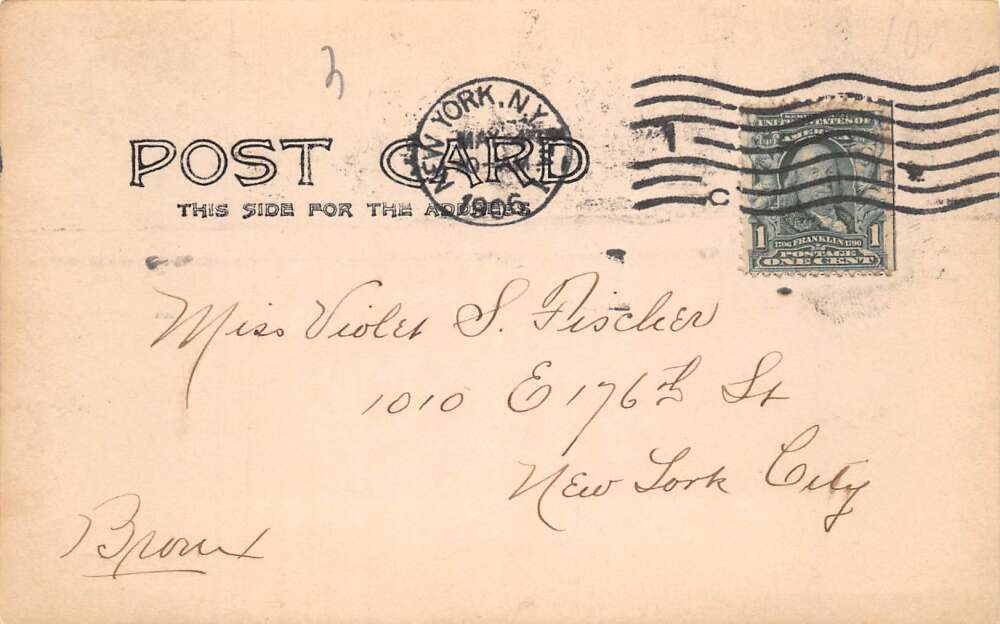 POST CARD
THIS SIDE FOR THE ADDRESS
NEW YORK, N.Y.
1906
1
C
UNITED STATES OF
AMERICA
1706 FRANKLIN 1790
1 1
POSTAGE
ONE CENT
Miss Violet S. Fischer
1010 E 176th St
New York City
Bronx